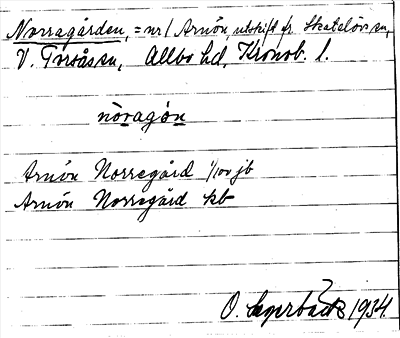 Norragården, = nr 1 Arnön, utskift fr. Skatelövs sn,
V. Torsås sn, Allbo hd, Kronob. l.
nòragɷ́n
Arnön Norregård 1/100 jb
Arnön Norregård kb
O. Lagerbäck 1934.